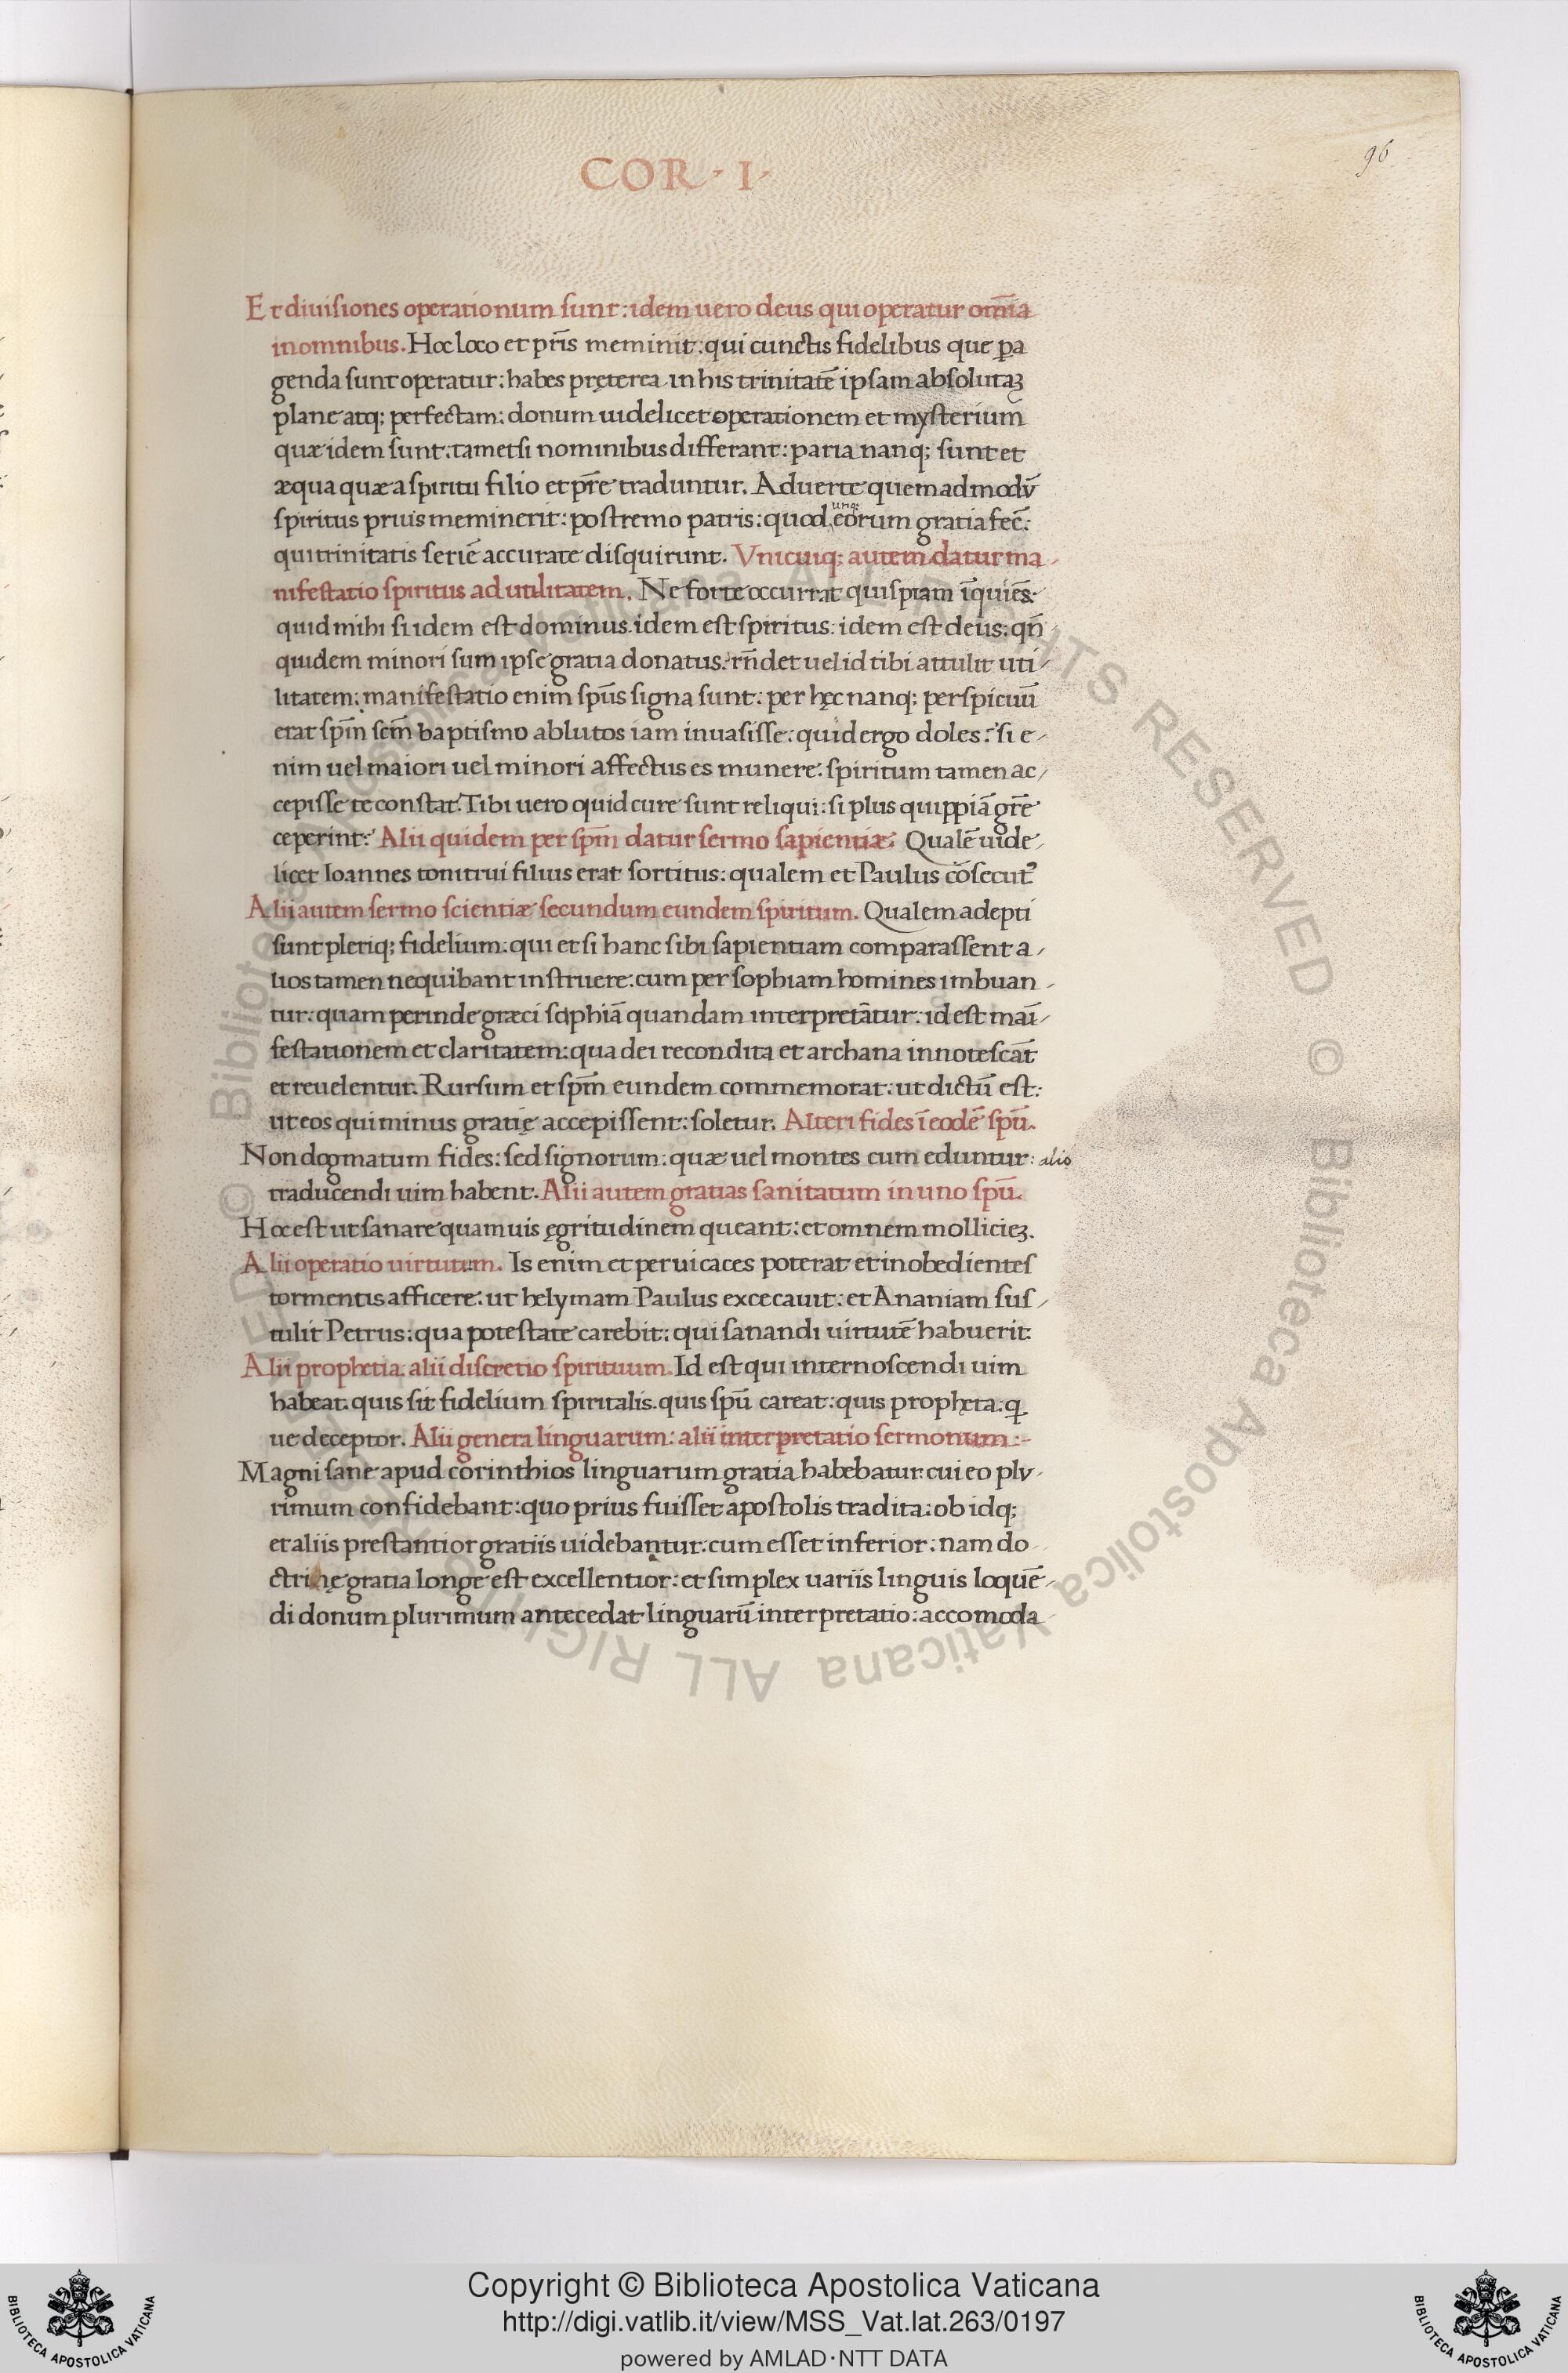 COR · I ·
96
Et diuisiones operationum sunt: idem uero deus qui operatur om̄ia
in omnibus. Hoc loco et pr̄is meminit: qui cunctis fidelibus que ꝑa
genda sunt operatur: habes pręterea in his trinitatē ipsam absolutaꝫ
plane atq; perfectam: donum uidelicet operationem et mysterium
quæ idem sunt: tametsi nominibus differant: paria nanq; sunt et
æqua quæ a spiritu filio et pr̄e traduntur. Aduerte quemadmodv̄
spiritus prius meminerit: postremo patris: quod eorum gratia fec̄:
qui trinitatis seriē accurate disquirunt. Vnicuiq; autem datur ma
nifestatio spiritus ad utilitatem. Ne forte occurrat quispiam īquiēs:
quid mihi si idem est dominus. idem est spiritus: idem est deus: qn̄
quidem minori sum ipse gratia donatus: rn̄det uel id tibi attulit uti
litatem: manifestatio enim sp̄us signa sunt: per hęc nanq; perspicuū
erat sp̄m sc̄m baptismo ablutos iam inuasisse: quid ergo doles: si e
nim uel maiori uel minori affectus es munere: spiritum tamen ac
cepisse te constat. Tibi uero quid cure sunt reliqui: si plus quippiā gr̄e
ceperint: Alii quidem per sp̄m datur sermo sapientiæ: Qualē uide
licet Ioannes tonitrui filius erat sortitus: qualem et Paulus cōsecut᷒
Alii autem sermo scientiæ secundum eundem spiritum. Qualem adepti
sunt pleriq; fidelium: qui et si hanc sibi sapientiam comparassent a
lios tamen nequibant instruere: cum per sophiam homines imbuan
tur: quam perinde græci sophiā quandam interpretātur: id est maī
festationem et claritatem: qua dei recondita et archana innotescāt
et reuelentur. Rursum et sp̄m eundem commemorat: ut dictū est:
ut eos qui minus gratię accepissent: soletur. Alteri fides ī eodē spū.
Non dogmatum fides: sed signorum: quæ uel montes cum eduntur: alio
traducendi uim habent. Alii autem gratias sanitatum in uno spū.
Hoc est ut sanare quamuis ęgritudinem queant: et omnem mollicieꝫ.
Alii operatio uirtutum. Is enim et peruicaces poterat et inobedientes
tormentis afficere: ut helymam Paulus excecauit: et Ananiam sus
tulit Petrus: qua potestate carebit: qui sanandi uirtutē habuerit:
Alii prophetia. alii discretio spirituum. Id est qui internoscendi uim
habeat. quis sit fidelium spiritalis. quis spū careat: quis prophęta: q
ue deceptor. Alii genera linguarum: alii interpretatio sermonum:-
Magni sane apud corinthios linguarum gratia habebatur: cui eo plv
rimum confidebant: quo prius fuisset apostolis tradita: ob idq;
et aliis prestantior gratiis uidebantur: cum esset inferior: nam do
ctrinę gratia longe est excellentior: et simplex uariis linguis loquē
di donum plurimum antecedat linguarū interpretatio: accomoda
Copyright © Biblioteca Apostolica Vaticana
http://digi.vatlib.it/view/MSS_Vat.lat.263/0197
powered by AMLAD·NTT DATA